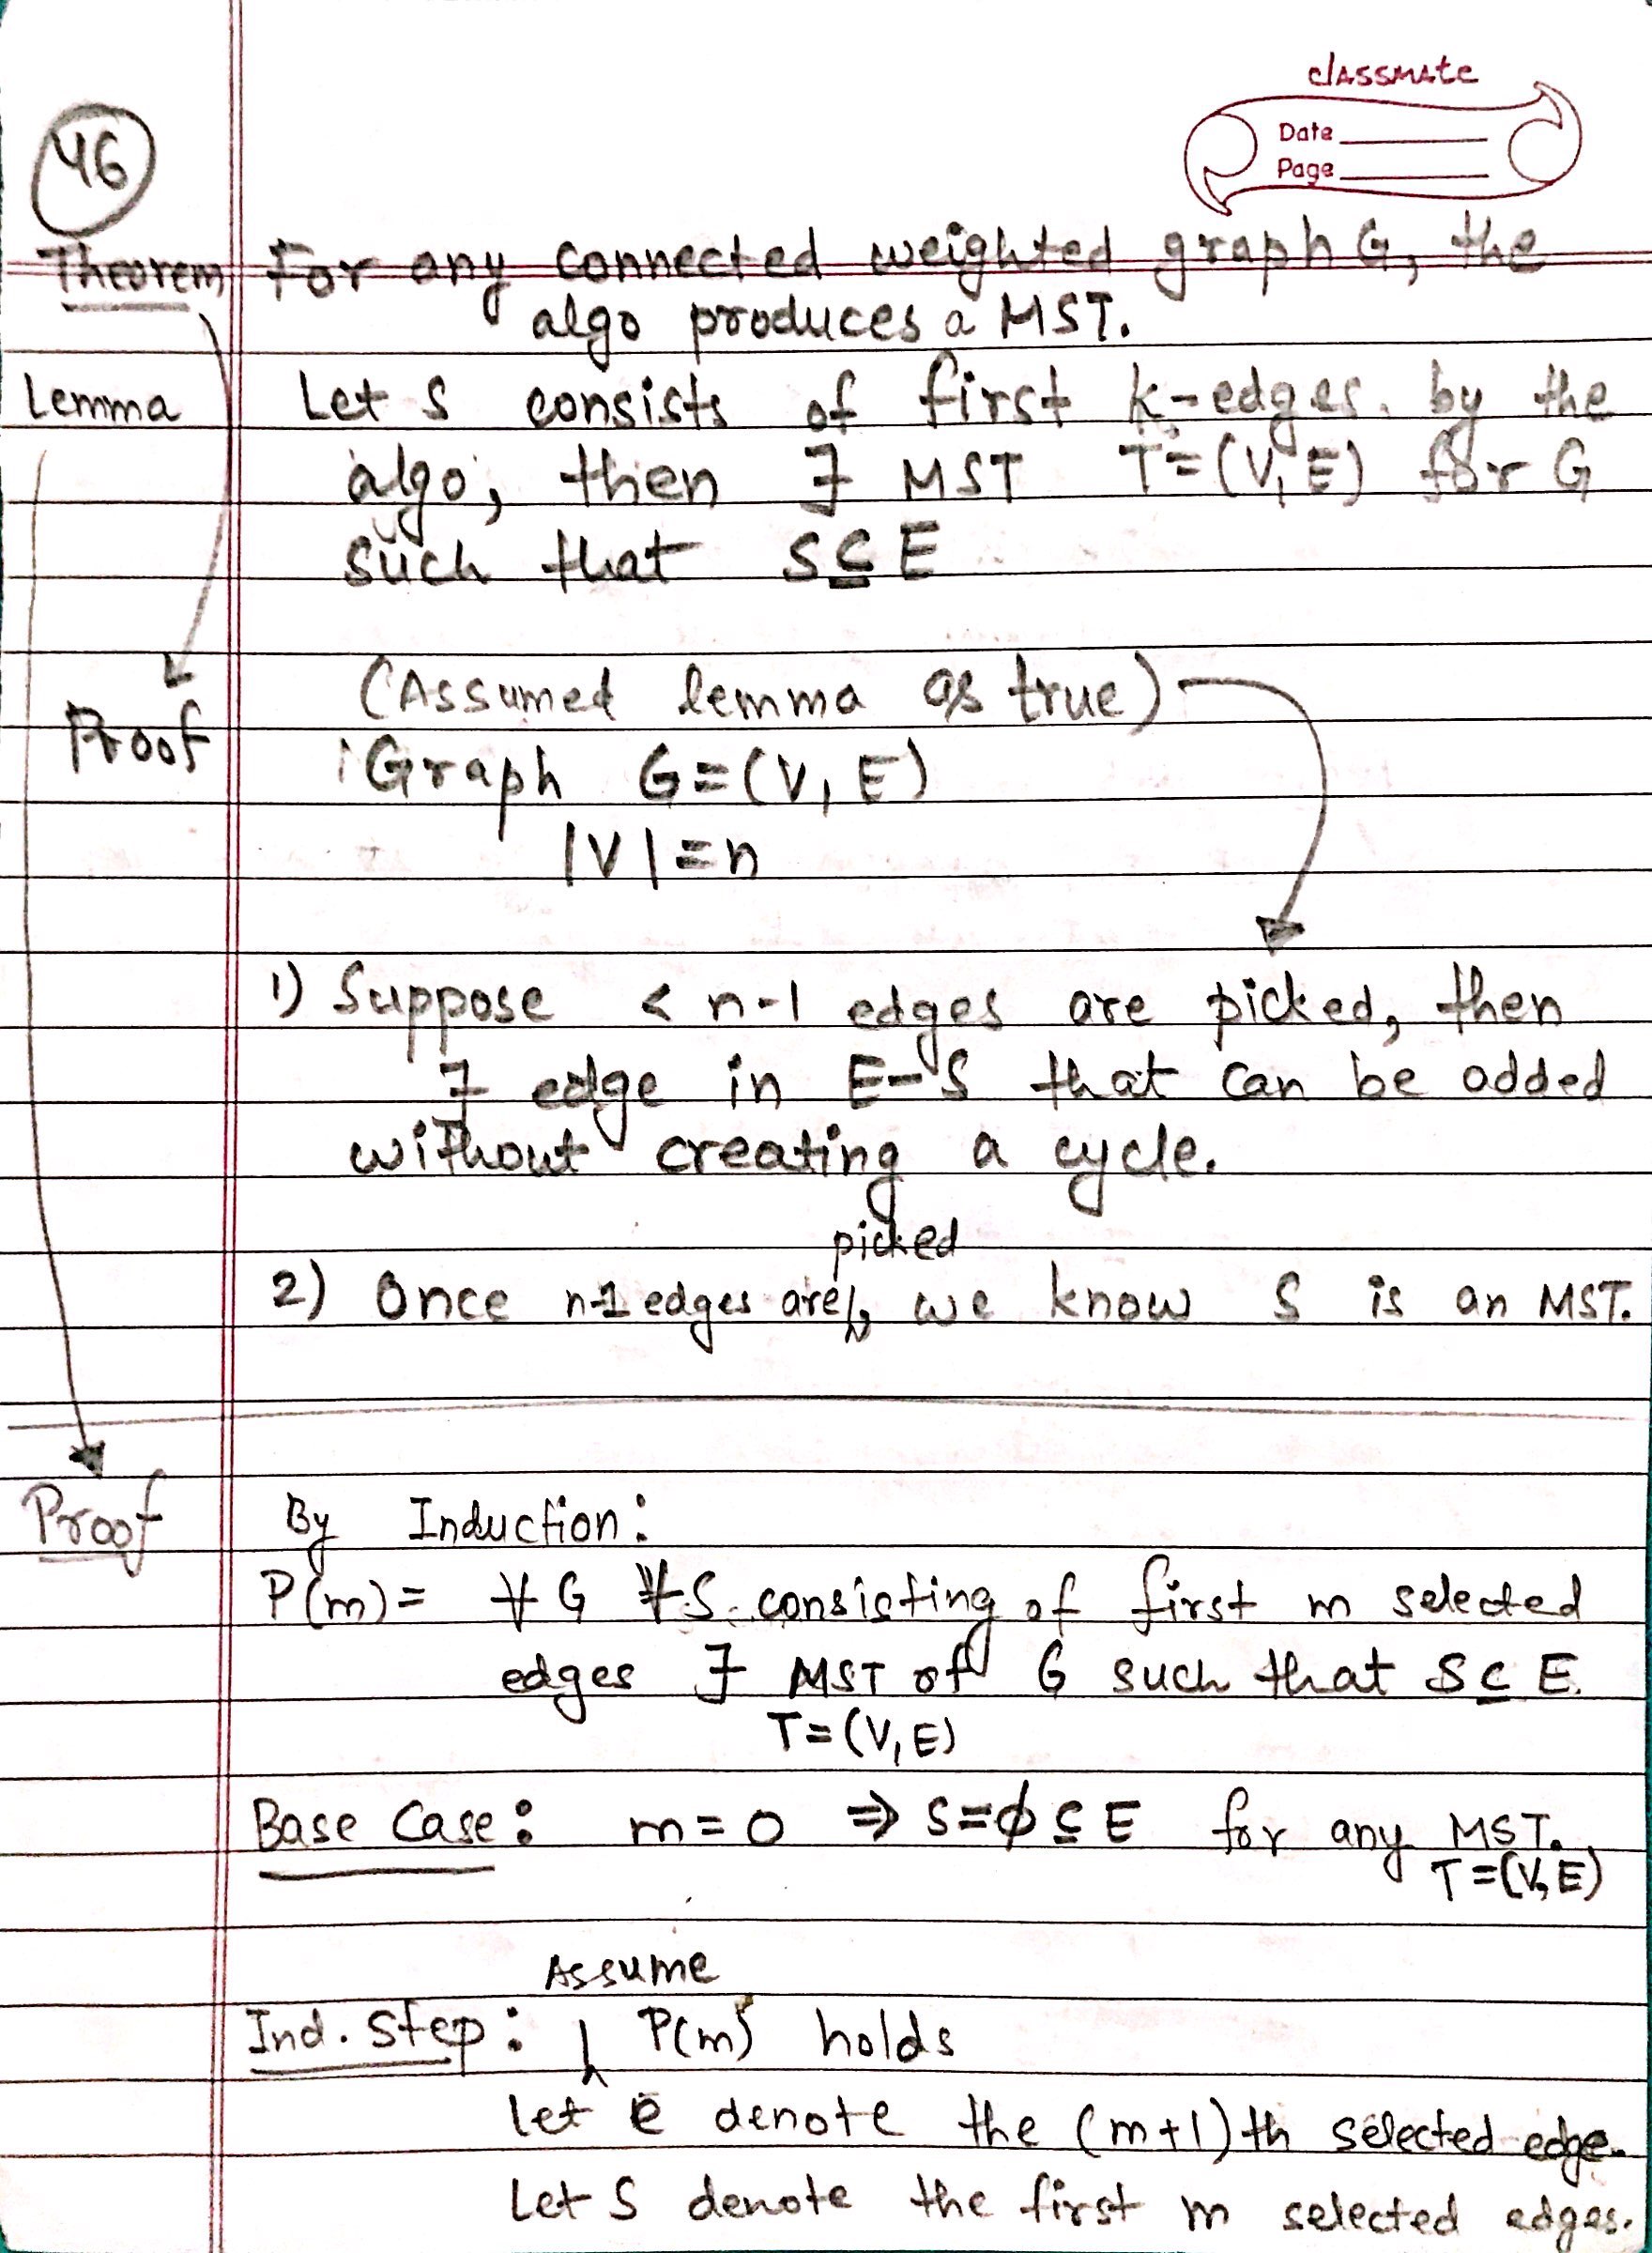 classmate
Date
Page
46
Theorem For any connected weighted graph G, the
algo produces a MST.
Lemma Let S consists of first k-edges by the
algo, then ∃ MST T=(V,E) for G
such that S⊆E
(Assumed lemma as true)
Proof Graph G=(V,E)
|V|=n
1) Suppose < n-1 edges are picked, then
∃ edge in E-S that can be added
without creating a cycle.
picked
2) Once n-1 edges are, we know S is an MST.
Proof By Induction:
P(m)= ∀ G ∀ S consisting of first m selected
edges ∃ MST of G such that S⊆E.
T=(V,E)
Base Case: m=0 ⇒ S=ϕ⊆E for any MST.
T=(V,E)
Assume
Ind. Step: P(m) holds
let e denote the (m+1)th selected edge.
Let S denote the first m selected edges.